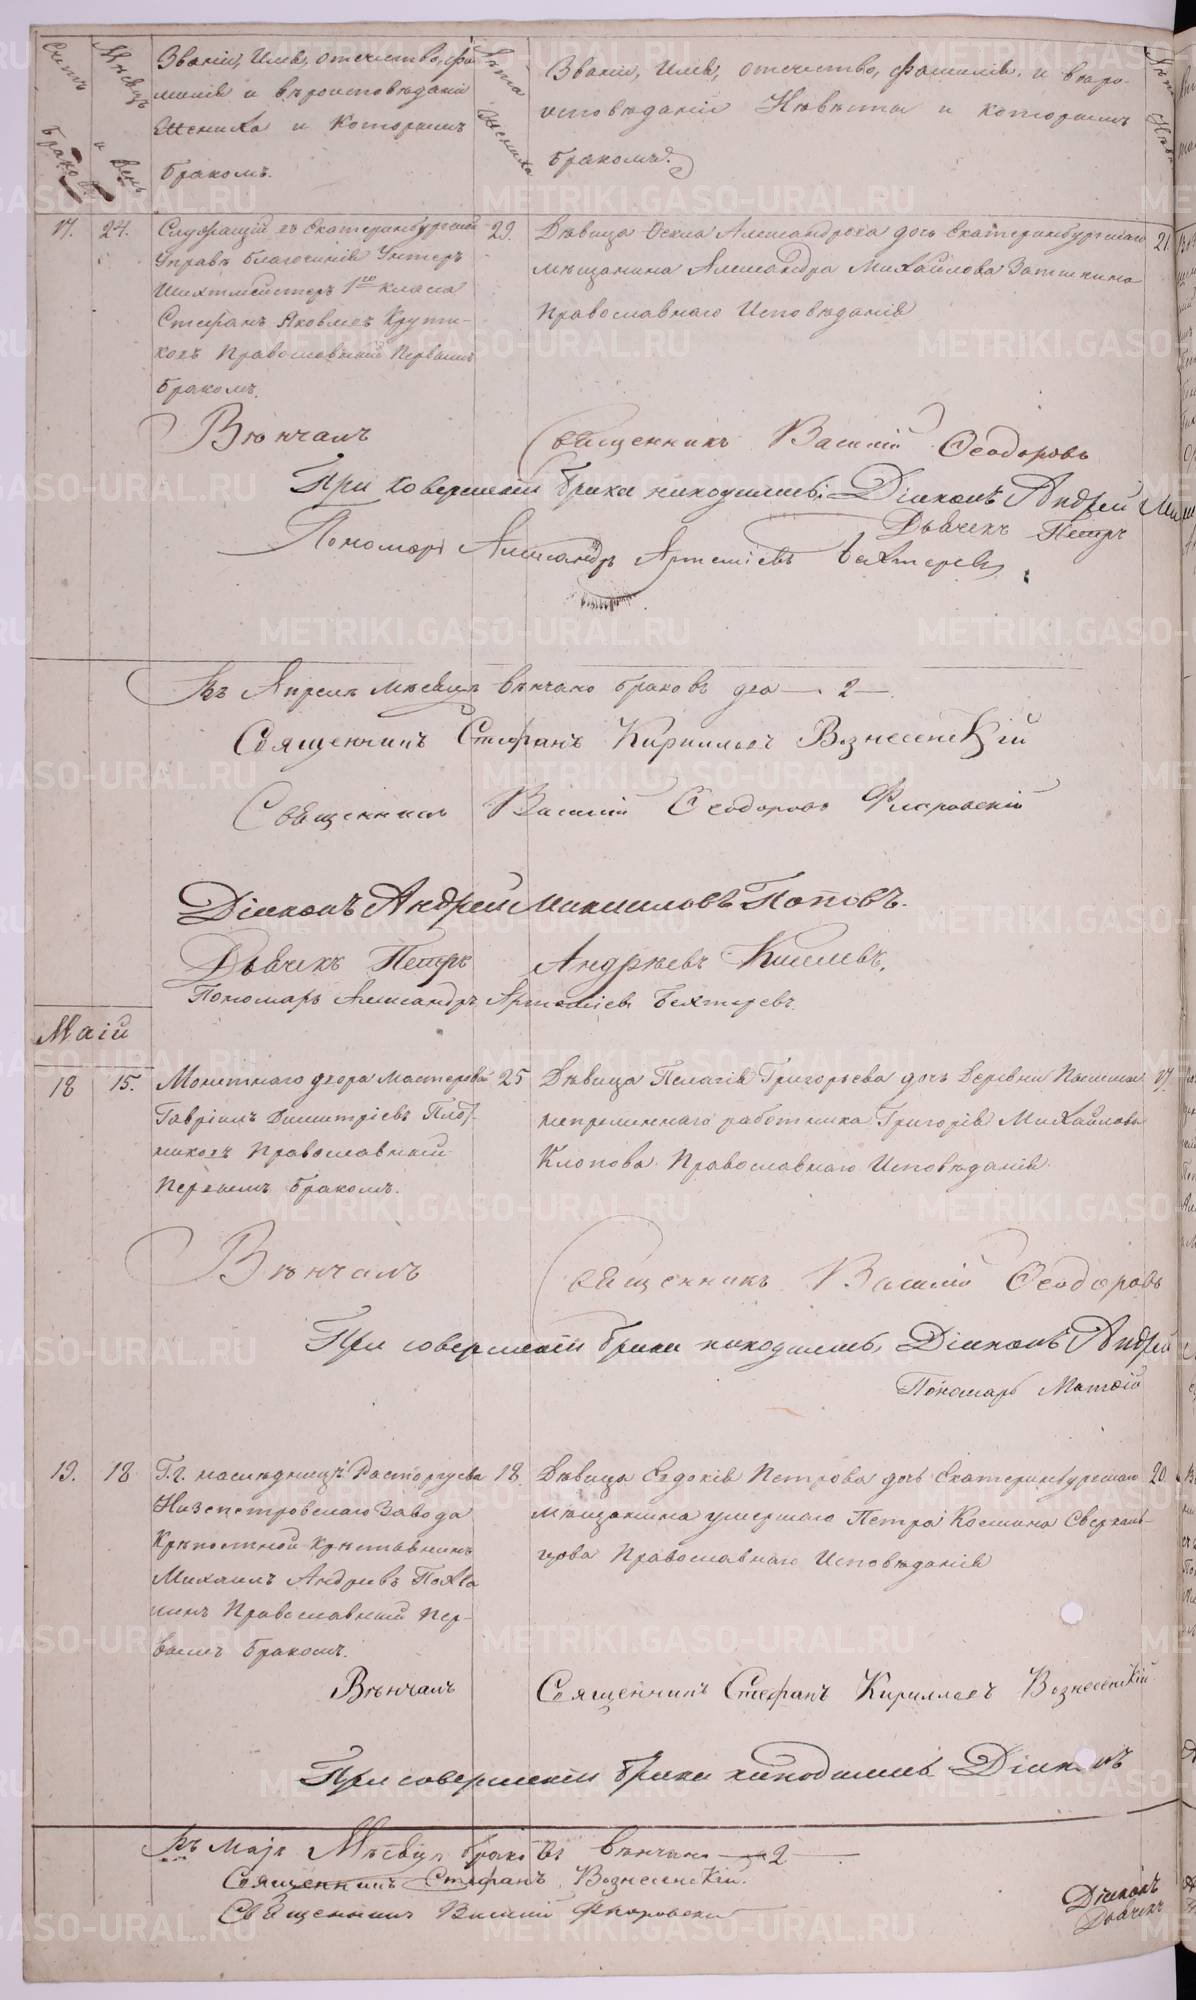 Счетъ Браковъ.
Мѣсяцъ и День
Званіе, Имя, отчество, фа
милія и вѣроисповѣданіе
Жениха и Которымъ
бракомъ.
Лѣта Жениха
Званіе, Имя, отчество, фамилія, и вѣро-
исповѣданіе Невѣсты и которымъ
бракомъ.
17.
24.
Служащій въ Екатеринбургской
Управѣ благочинія Унтеръ
Шихтмейстеръ 1го класа
Стефанъ Яковлевъ Крути-
ковъ Православный Первымъ
бракомъ.
29.
Дѣвица Александрова дочь Екатеринбургскаго
мѣщанина Александра Михайлова
Православнаго Исповѣданія
21
Вѣнчалъ Священникъ Василій Ѳеодоровъ
При совершеніи брака находились: Діаконъ Андрей
Дьячекъ Петръ
Пономарь Александръ Артеміевъ Бехтеревъ
Въ Апрелѣ Мѣсяцѣ вѣнчано браковъ два — 2 —.
Священникъ Стефанъ Кирилловъ Вознесенскій
Священникъ Василій Ѳеодоровъ Флоровскій
Діаконъ Андрей Поповъ.
Дьячекъ Петръ Андреевъ Киселевъ.
Пономарь Александръ Артеміевъ Бехтеревъ.
Маій
18
15.
Монетнаго двора Мастеровой
Гавріилъ Димитріевъ Плот-
никовъ Православный
Первымъ бракомъ.
25
Дѣвица Пелагія Григорьева дочь Деревни
непременнаго работника Григорія Михайлова
Клопова Православнаго Исповѣданія
17.
Вѣнчалъ Священникъ Василій Ѳеодоровъ
При совершеніи брака находились, Діаконъ Андрей
Пономарь Матѳій
19.
18
Г.г. наслѣдницъ Расторгуева
Нязепетровскаго Завода
Крѣпостной Крестьянинъ
Михаилъ Андреевъ
Православный Пер-
вымъ бракомъ.
18.
Дѣвица Евдокія Петрова дочь Екатеринбургскаго
мѣщанина умершаго Петра Косьмина Сверхаль-
цова Православнаго Исповѣданія
20.
Вѣнчалъ Священникъ Стефанъ Кирилловъ Вознесенскій
При совершеніи брака находились Діаконъ
Въ Маѣ Мѣсяцѣ браковъ вѣнчано — 2 —.
Священникъ Стефанъ Вознесенскій.
Священникъ Василій Флоровскій
Діаконъ
Дьячекъ
METRIKI.GASO-URAL.RU